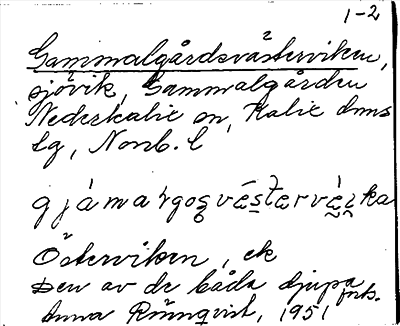 1-2
Gammalgårdsvästerviken,
sjövik, Gammalgården
Nederkalix sn, Kalix dms
lg, Norrb. l
Österviken, ek
Den av de båda djupa
Anna Rönnqvist, 1951